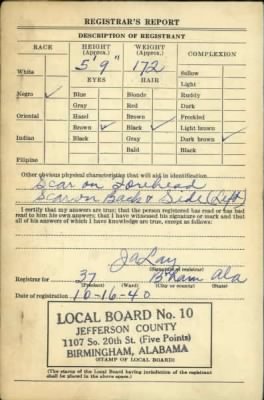 REGISTRAR'S REPORT
DESCRIPTION OF REGISTRANT
RACE HEIGHT (Approx.) WEIGHT (Approx.) COMPLEXION
5'9" 172
White EYES HAIR Sallow
Light
Negro ✓ Blue Blonde Ruddy
Gray Red Dark
Oriental Hazel Brown Freckled
Brown ✓ Black ✓ Light brown
Indian Black Gray Dark brown ✓
Bald Black
Filipino
Other obvious physical characteristics that will aid in identification
Scar on Forehead
Scar on Back & Side (Left)
I certify that my answers are true; that the person registered has read or has had
read to him his own answers; that I have witnessed his signature or mark and that
all of his answers of which I have knowledge are true, except as follows:
(Signature of registrar)
Registrar for 37 B'ham Ala
(Precinct) (Ward) (City or county) (State)
Date of registration 10-16-40
LOCAL BOARD No. 10
JEFFERSON COUNTY
1107 So. 20th St. (Five Points)
BIRMINGHAM, ALABAMA
(STAMP OF LOCAL BOARD)
(The stamp of the Local Board having jurisdiction of the registrant
shall be placed in the above space.)